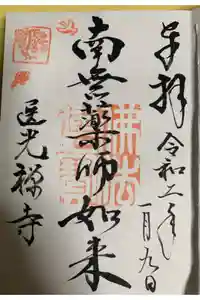 奉拝
令和二年
一月九日
南無薬師如来
医光禅寺
佛法僧寳